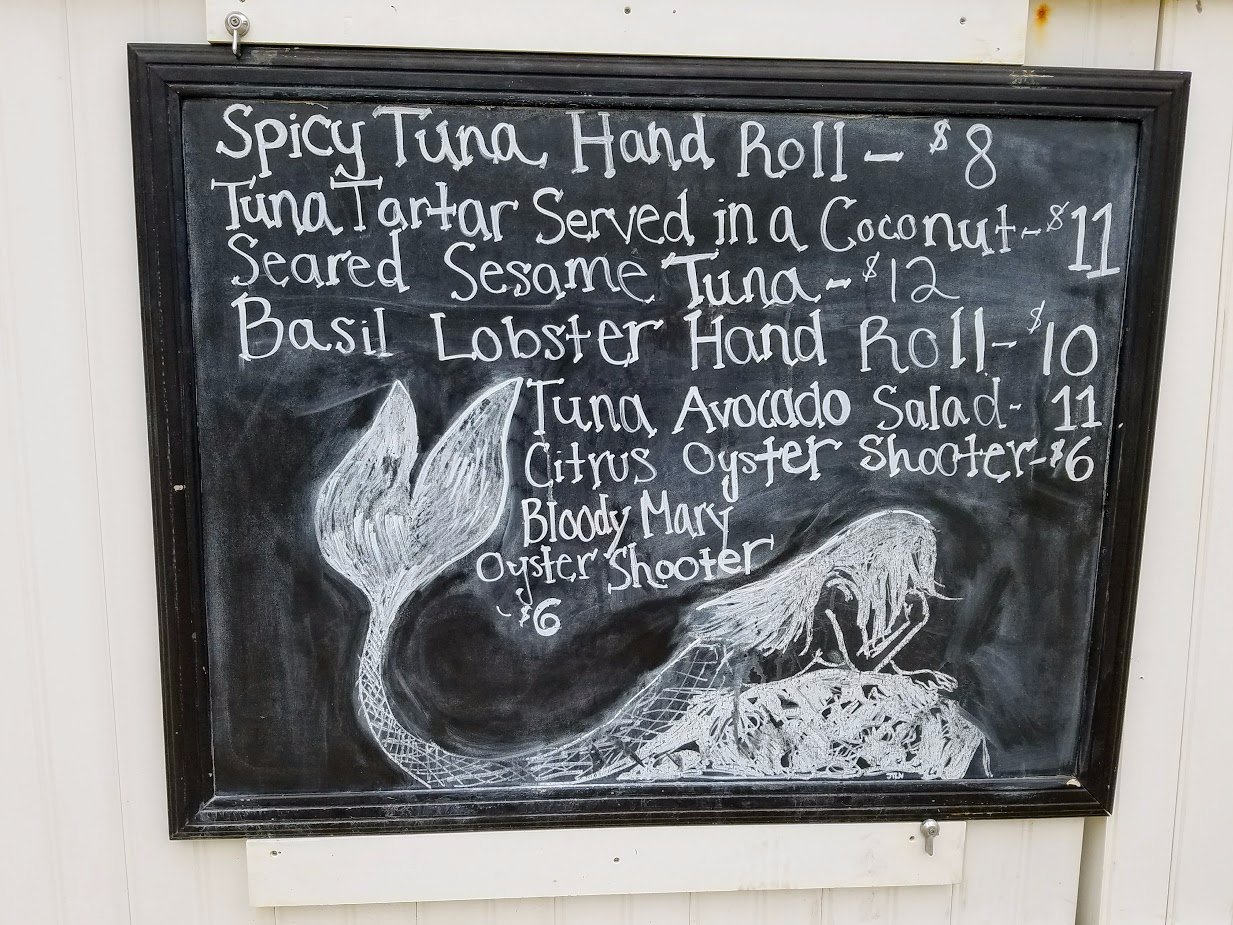 Spicy Tuna Hand Roll - $8
Tuna Tartar Served in a Coconut - $11
Seared Sesame Tuna - $12
Basil Lobster Hand Roll - $10
Tuna Avocado Salad - 11
Citrus Oyster Shooter - $6
Bloody Mary
Oyster Shooter
- $6